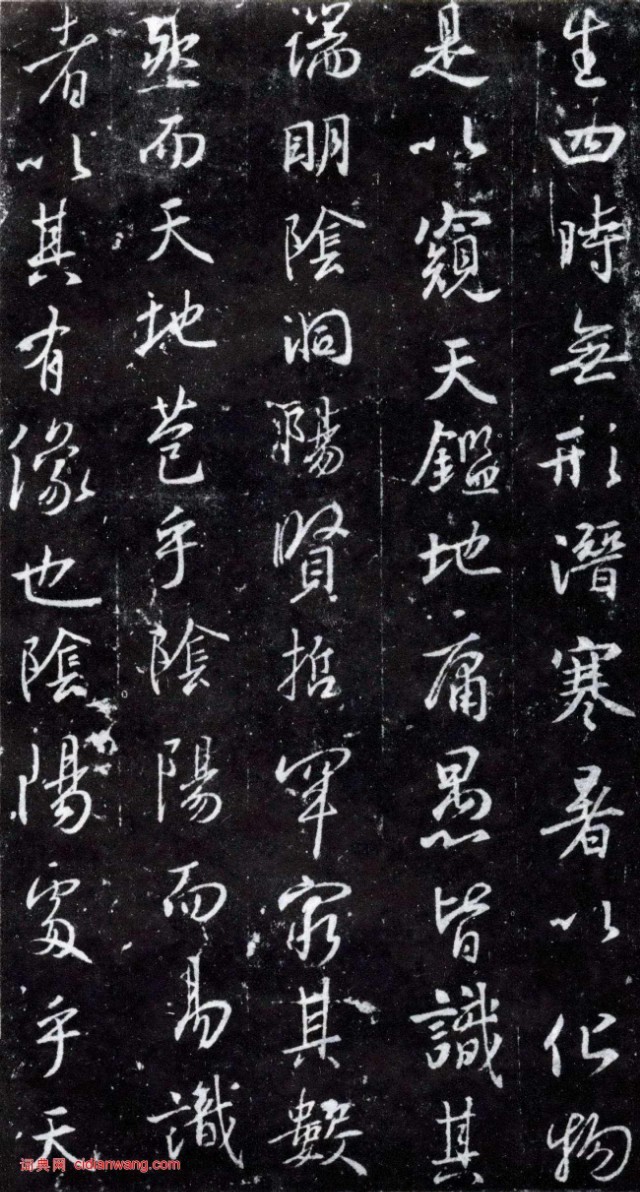 生四時無形潛寒暑以化物
是以窺天鑑地庸愚皆識其
端明陰洞陽賢哲罕窮其數
然而天地苞乎陰陽而易識
者以其有像也陰陽處乎天
词典网 cidianwang.com